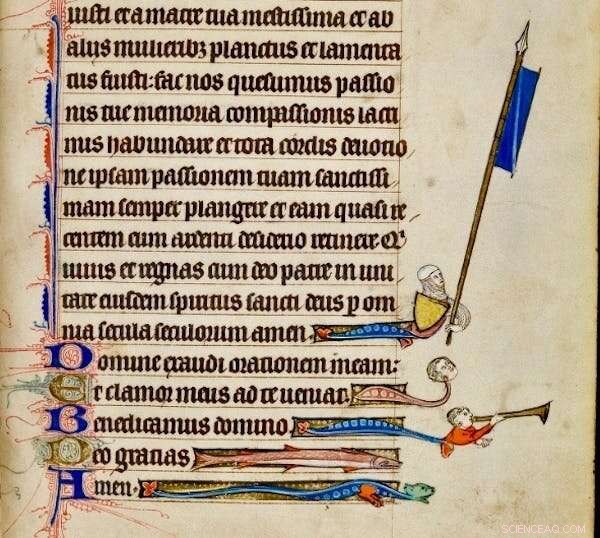 iusti et a matre tua mestissima et ab
aliis mulieribz planctus et lamenta
tus fuisti: fac nos quesumus passio
nis tue memoria compassionis lacri
mis habundare et tota cordis deuotio
ne ipsam passionem tuam sanctissi
mam semper plangere et eam quasi re
centem cum ardenti desiderio retinere Q
uiuis et regnas cum deo patre in uni
tate eiusdem spiritus sancti deus p om
nia secula seculorum amen.
Domine exaudi orationem meam:
Et clamor meus ad te ueniat.
Benedicamus domino.
Deo gracias
Amen.
SCIENCEAQ.COM